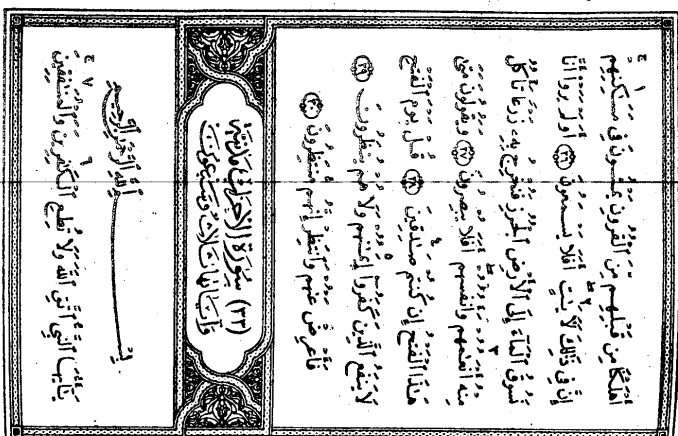 أَهْلَكْنَا مِن قَبْلِهِم مِّنَ ٱلْقُرُونِ يَمْشُونَ فِى مَسَٰكِنِهِمْ
إِنَّ فِى ذَٰلِكَ لَأَيَٰتٍ أَفَلَا يَسْمَعُونَ ﴿٢٦﴾ أَوَلَمْ يَرَوْا۟ أَنَّا
نَسُوقُ ٱلْمَآءَ إِلَى ٱلْأَرْضِ ٱلْجُرُزِ فَنُخْرِجُ بِهِۦ زَرْعًا تَأْكُلُ
مِنْهُ أَنْعَٰمُهُمْ وَأَنفُسُهُمْ أَفَلَا يُبْصِرُونَ ﴿٢٧﴾ وَيَقُولُونَ مَتَىٰ
هَٰذَا ٱلْفَتْحُ إِن كُنتُمْ صَٰدِقِينَ ﴿٢٨﴾ قُلْ يَوْمَ ٱلْفَتْحِ
لَا يَنفَعُ ٱلَّذِينَ كَفَرُوٓا۟ إِيمَٰنُهُمْ وَلَا هُمْ يُنظَرُونَ ﴿٢٩﴾
فَأَعْرِضْ عَنْهُمْ وَٱنتَظِرْ إِنَّهُم مُّنتَظِرُونَ ﴿٣٠﴾
(٣٣) سُورَةُ الأَحْزَابِ مَدَنِيَّة
وَآيَاتُهَا ثَلَاثٌ وَسَبْعُونَ
بِسْمِ ٱللَّهِ ٱلرَّحْمَٰنِ ٱلرَّحِيمِ
يَٰٓأَيُّهَا ٱلنَّبِىُّ ٱتَّقِ ٱللَّهَ وَلَا تُطِعِ ٱلْكَٰفِرِينَ وَٱلْمُنَٰفِقِينَ